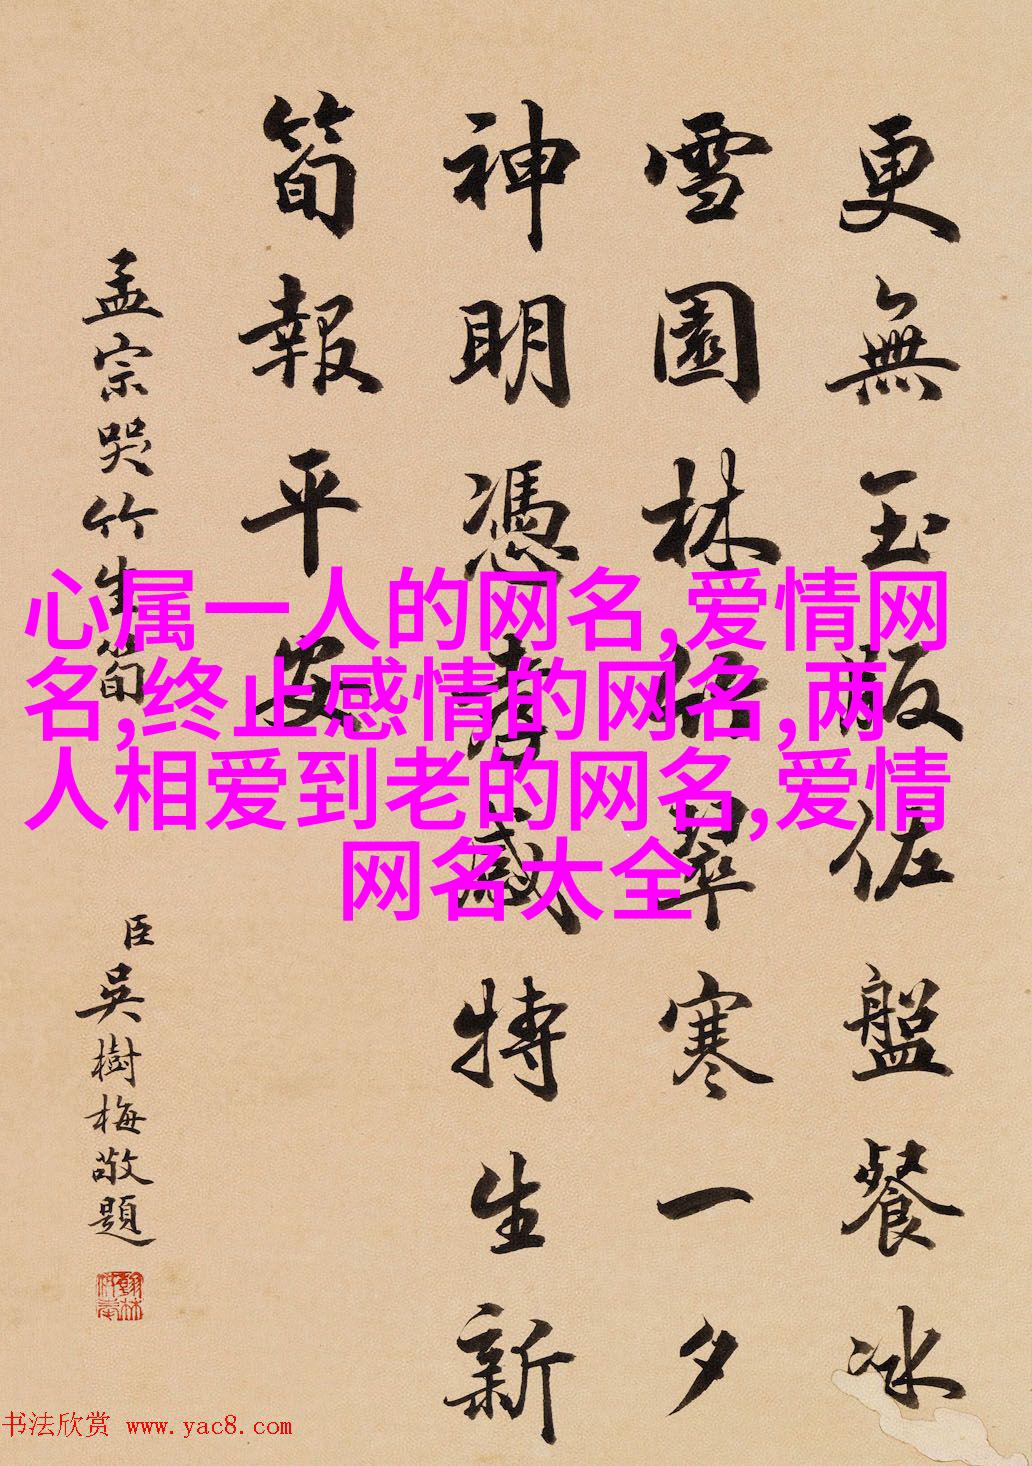 更無玉版佐盤餐冰
雪園林倍翠寒一夕
神明憑孝感特生新
筍報平安
孟宗哭竹生筍
臣吳樹梅敬題
心属一人的网名,爱情网
名,终止感情的网名,两
人相爱到老的网名,爱情
网名大全
书法欣赏 www.yac8.com